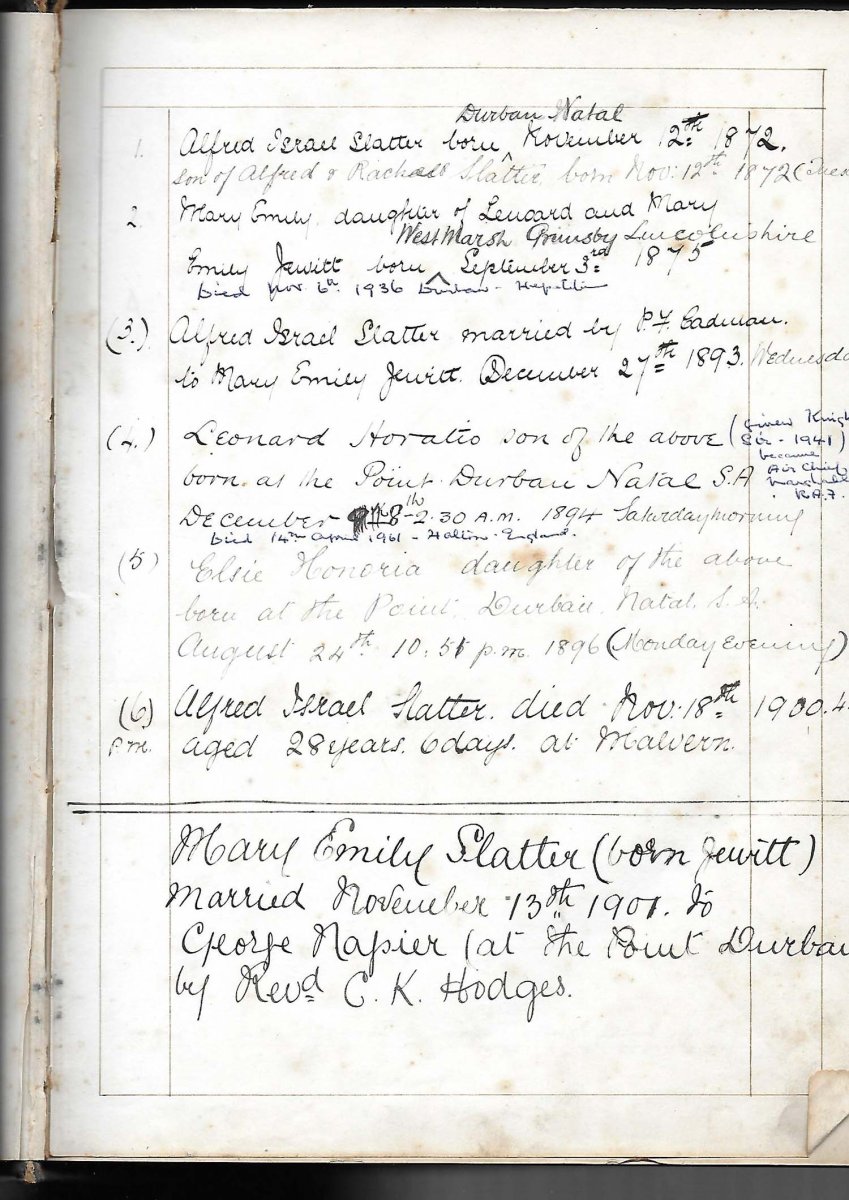 Durban Natal
1. Alfred Israel Slatter born ^ November 12th 1872.
son of Alfred & Rachael Slatter born Nov: 12th 1872 (Tues
2. Mary Emily daughter of Leonard and Mary
West Marsh Grimsby Lincolnshire
Emily Jewitt born ^ September 3rd 1875
Died Nov 6th 1936 Durban -
(3.) Alfred Israel Slatter married by P. F. Cadman.
to Mary Emily Jewitt. December 27th 1893. Wednesda
(4.) Leonard Horatio son of the above (given Knigh
Sir - 1941)
born at the Point Durban Natal S.A
became
Air Chief
Marshall
R.A.F.
December 8th 2.30 A.M. 1894 Saturday morning
Died 14th April 1961 - Halton - England.
(5) Elsie Honoria daughter of the above
born at the Point. Durban. Natal. S.A.
August 24th 10.51 p.m. 1896 (Monday Evening)
(6) Alfred Israel Slatter. died Nov. 18th 1900. 4
p.m. aged 28 years. 6 days. at Malvern.
Mary Emily Slatter (born Jewitt)
Married November 13th 1901. to
George Napier (at the Point Durban
by Revd C. K. Hodges.